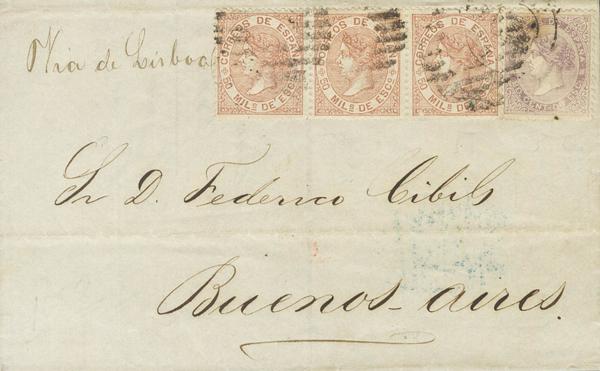 Via de Lisboa
CORREOS DE ESPAÑA
50 MILS DE ESCO
CORREOS DE ESPAÑA
50 MILS DE ESCO
CORREOS DE ESPAÑA
50 MILS DE
Sr D. Federico Cibils
Buenos-aires.